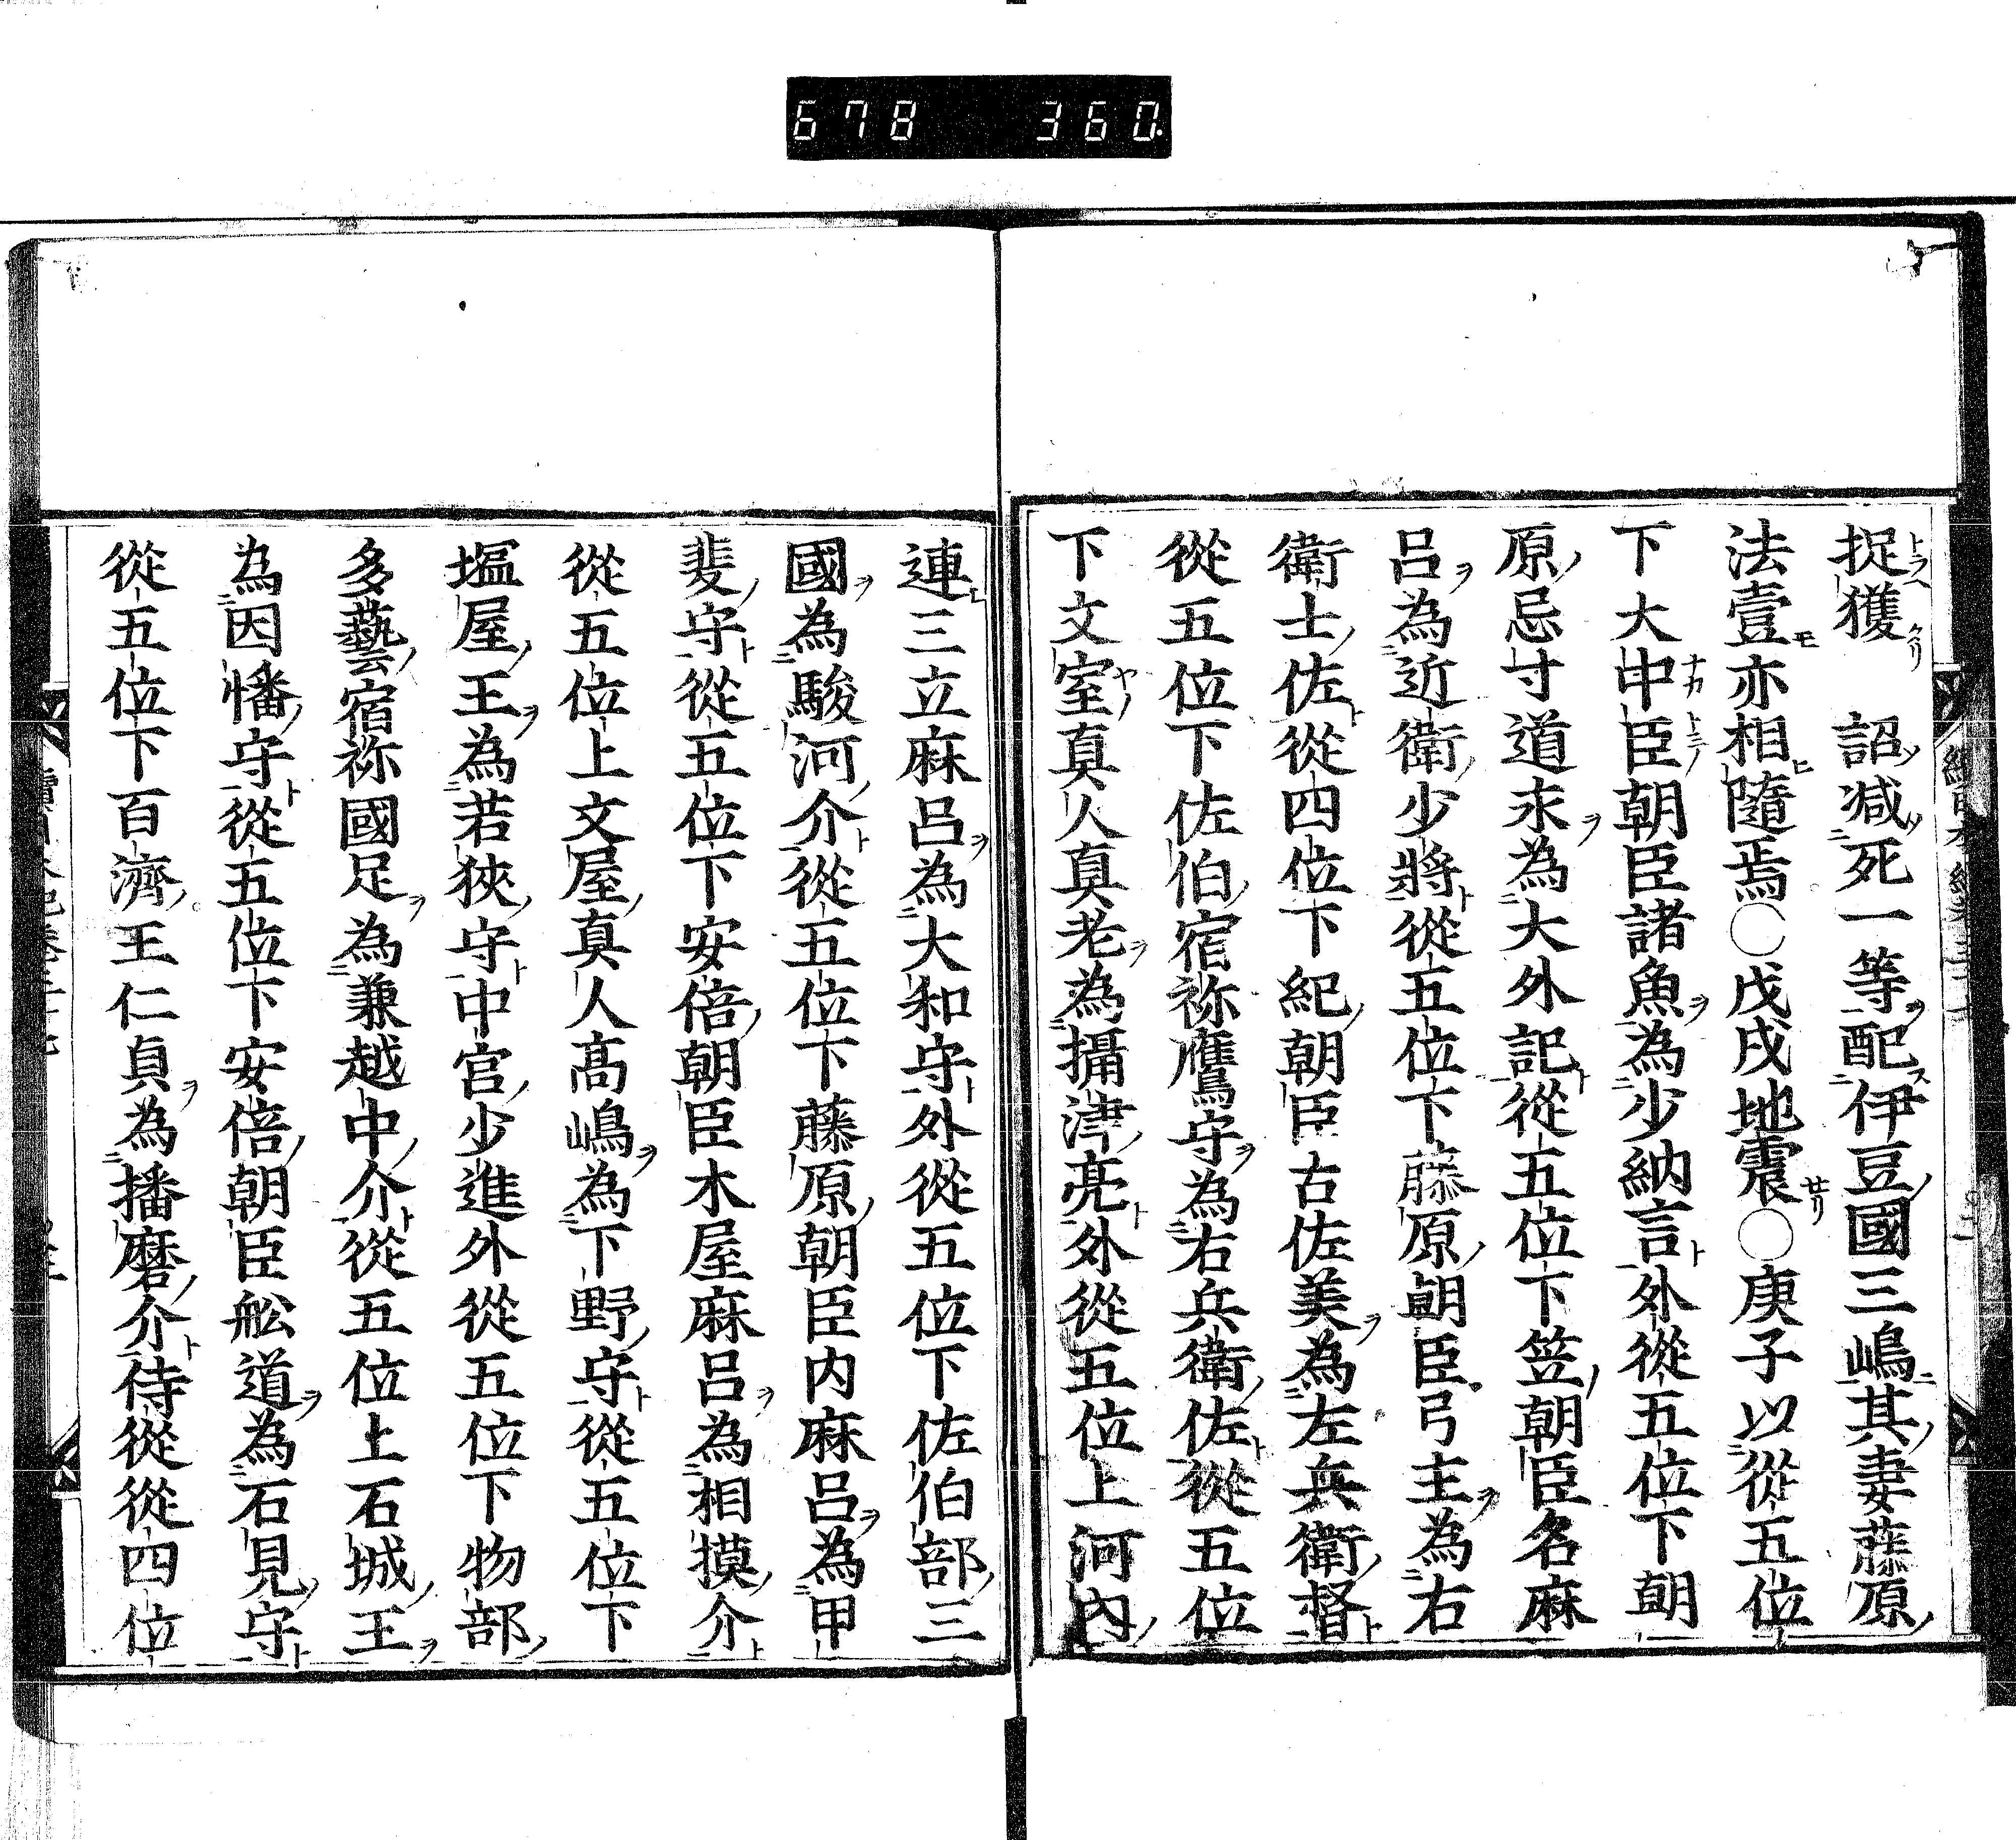 678 360
捉獲 詔減死一等配伊豆國三嶋其妻藤原
法壹亦相隨焉○戊戌地震○庚子以從五位
下大中臣朝臣諸魚為少納言外從五位下朝
原忌寸道永為大外記從五位下笠朝臣名麻
呂為近衛少將從五位下藤原朝臣弓主為右
衛士佐從四位下紀朝臣古佐美為左兵衛督
從五位下佐伯宿祢鷹守為右兵衛佐從五位
下文室真人真老為攝津亮外從五位上河內
連三立麻呂為大和守外從五位下佐伯部三
國為駿河介從五位下藤原朝臣内麻呂為甲
斐守從五位下安倍朝臣木屋麻呂為相摸介
從五位上文屋真人高嶋為下野守從五位下
塩屋王為若狹守中宮少進外從五位下物部
多藝宿祢國足為兼越中介從五位上石城王
為因幡守從五位下安倍朝臣舩道為石見守
從五位下百濟王仁貞為播磨介侍從從四位